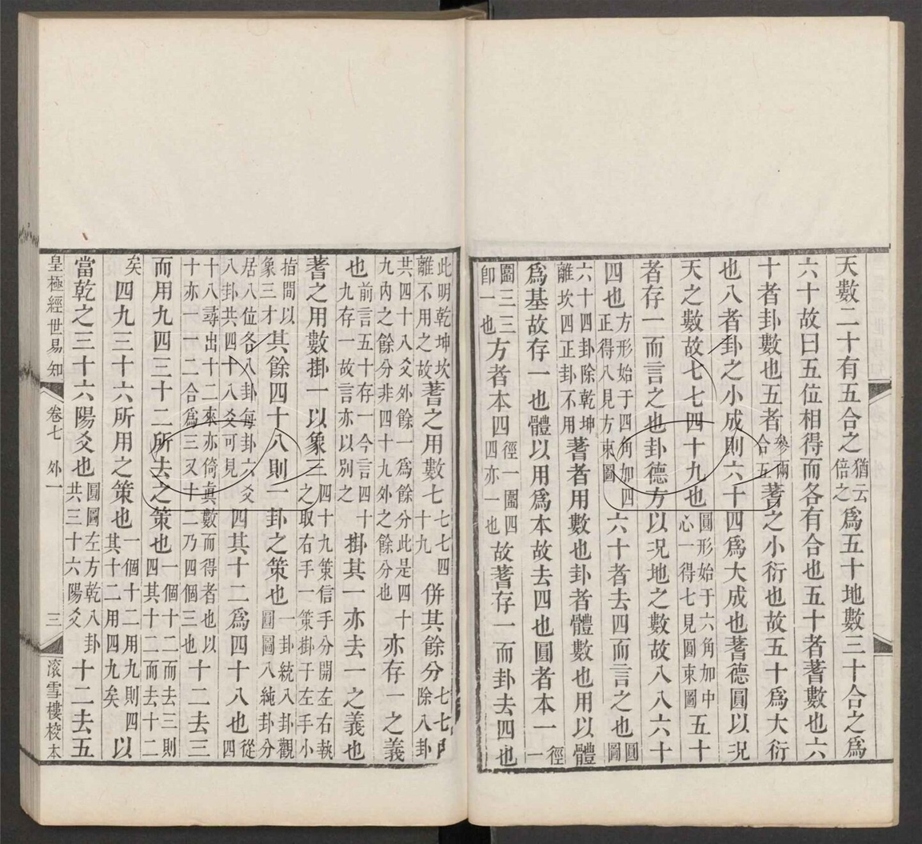 天數二十有五合之猶云倍之爲五十地數三十合之爲
六十故曰五位相得而各有合也五十者蓍數也六
十者卦數也五者參兩合五蓍之小衍也故五十爲大衍
也八者卦之小成則六十四爲大成也蓍德圓以況
天之數故七七四十九也圓形始于六角加中心一得七見圓束圖五十
者存一而言之也卦德方以況地之數故八八六十
四也方形始于四角加四正得八見方束圖六十者去四而言之也圓圖
六十四卦除乾坤離坎四正卦不用蓍者用數也卦者體數也用以體
爲基故存一也體以用爲本故去四也圓者本一徑一
圍三三即一也方者本四徑一圍四四亦一也故蓍存一而卦去四也
此明乾坤坎離不用之故蓍之用數七七七四十九併其餘分七七除八卦
共四十八爻外餘一爲餘分此是四十九內之餘分非四十九外之餘分也亦存一之義
也前言五十存一今言四十九存一故言亦以別之掛其一亦去一之義也
蓍之用數掛一以象三四十九策信手分開左右執之取右手一策掛于左手小
指間以象三才其餘四十八則一卦之策也一卦統八卦觀圓圖八純卦分
居八位各八卦每卦六爻八卦共四十八爻可見四其十二爲四十八也從四
十八尋出十二來亦倚眞數而得者也以十亦一一二合爲三又十二乃四個三也十二去三
而用九四三十二所去之策也一個十二而去三則四其十二而去十二
矣四九三十六所用之策也一個十二用九則四其十二用四九矣以
當乾之三十六陽爻也圓圖左方乾八卦共三十六陽爻十二去五
皇極經世易知 卷七 外一 三 滚雪樓校本